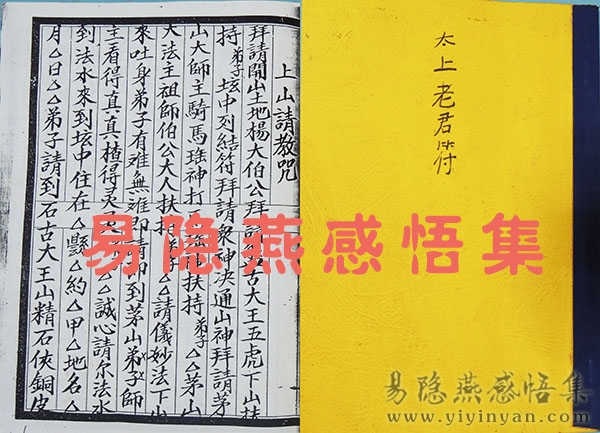 太上老君符
上山請教咒
拜請開山土地楊大伯公拜請古大王五虎下山扶
持弟子坛中列結符拜請衆神决通山神拜請茅
山大師主騎馬珠神打扶持弟子△茅山
大法主祖師伯公大人扶持弟子△請儀妙法下山
來吐身弟子有难無难即請師到茅山弟子師
主看得真真楂得灵△誠心請尔法水
到法水來到坛中住在△縣△約△甲△地名△
月△日△△弟子請到石古大王山精石俠銅皮
易隐燕感悟集
易隐燕感悟集
www.yiyinyan.com